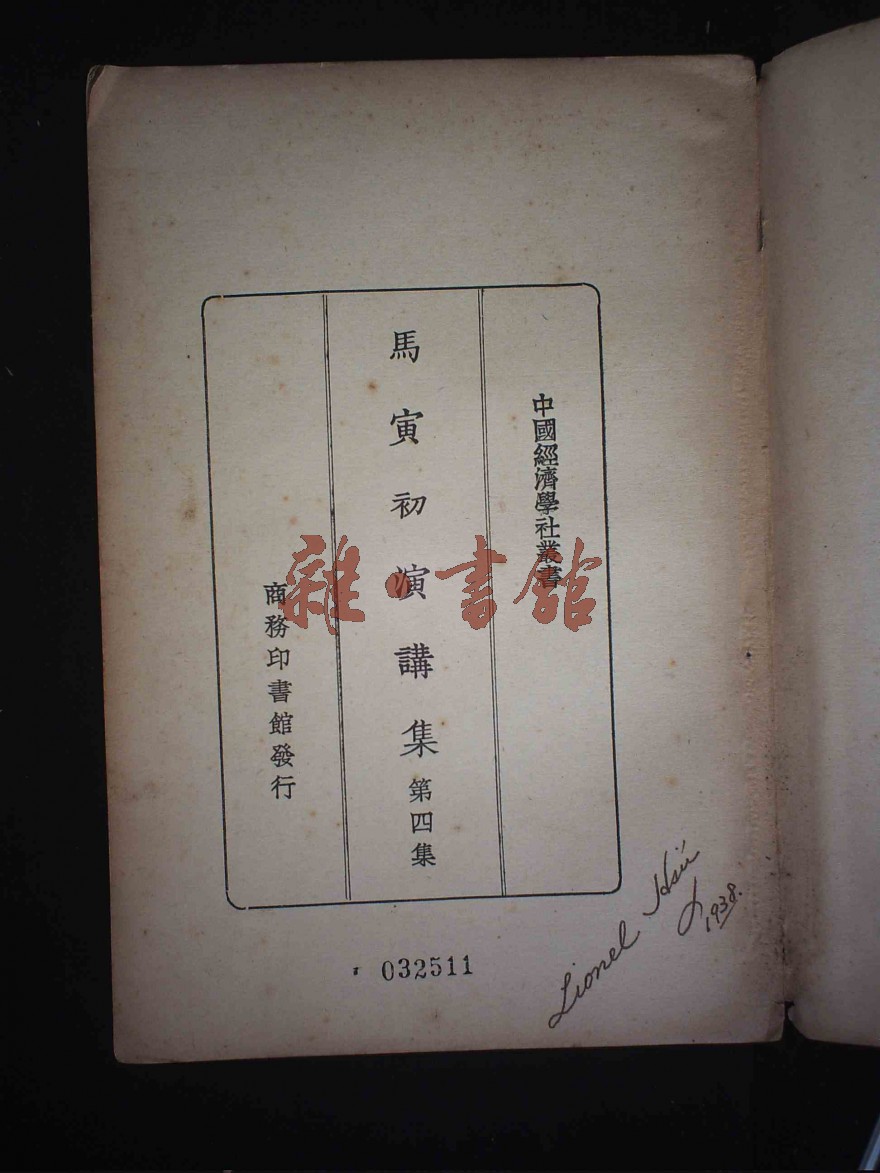 中國經濟學社叢書
馬寅初演講集 第四集
商務印書館發行
雜書館
032511
Lionel Hsü
1938.